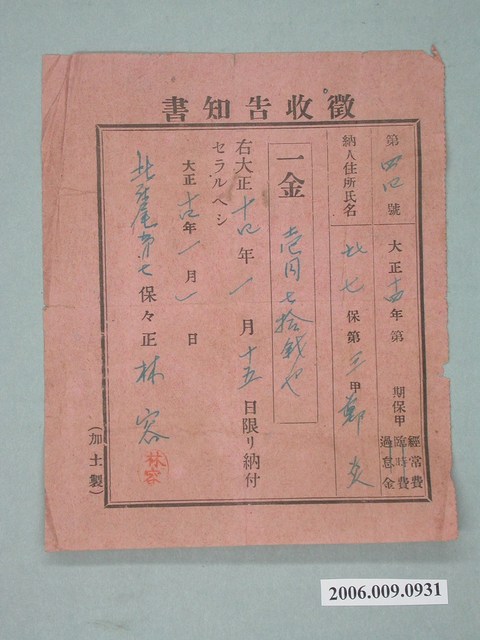 徵收告知書
第四〇號 大正十四年第 期保甲 經常費 臨時費 過怠金
納人住所氏名 北七保第三甲鄭炎
一金 壱円七拾錢也
右大正十四年一月十五日限リ納付
セラルヘシ
大正十四年一月一日
北 尾第七保々正林容
林容
(加土製)
2006.009.0931